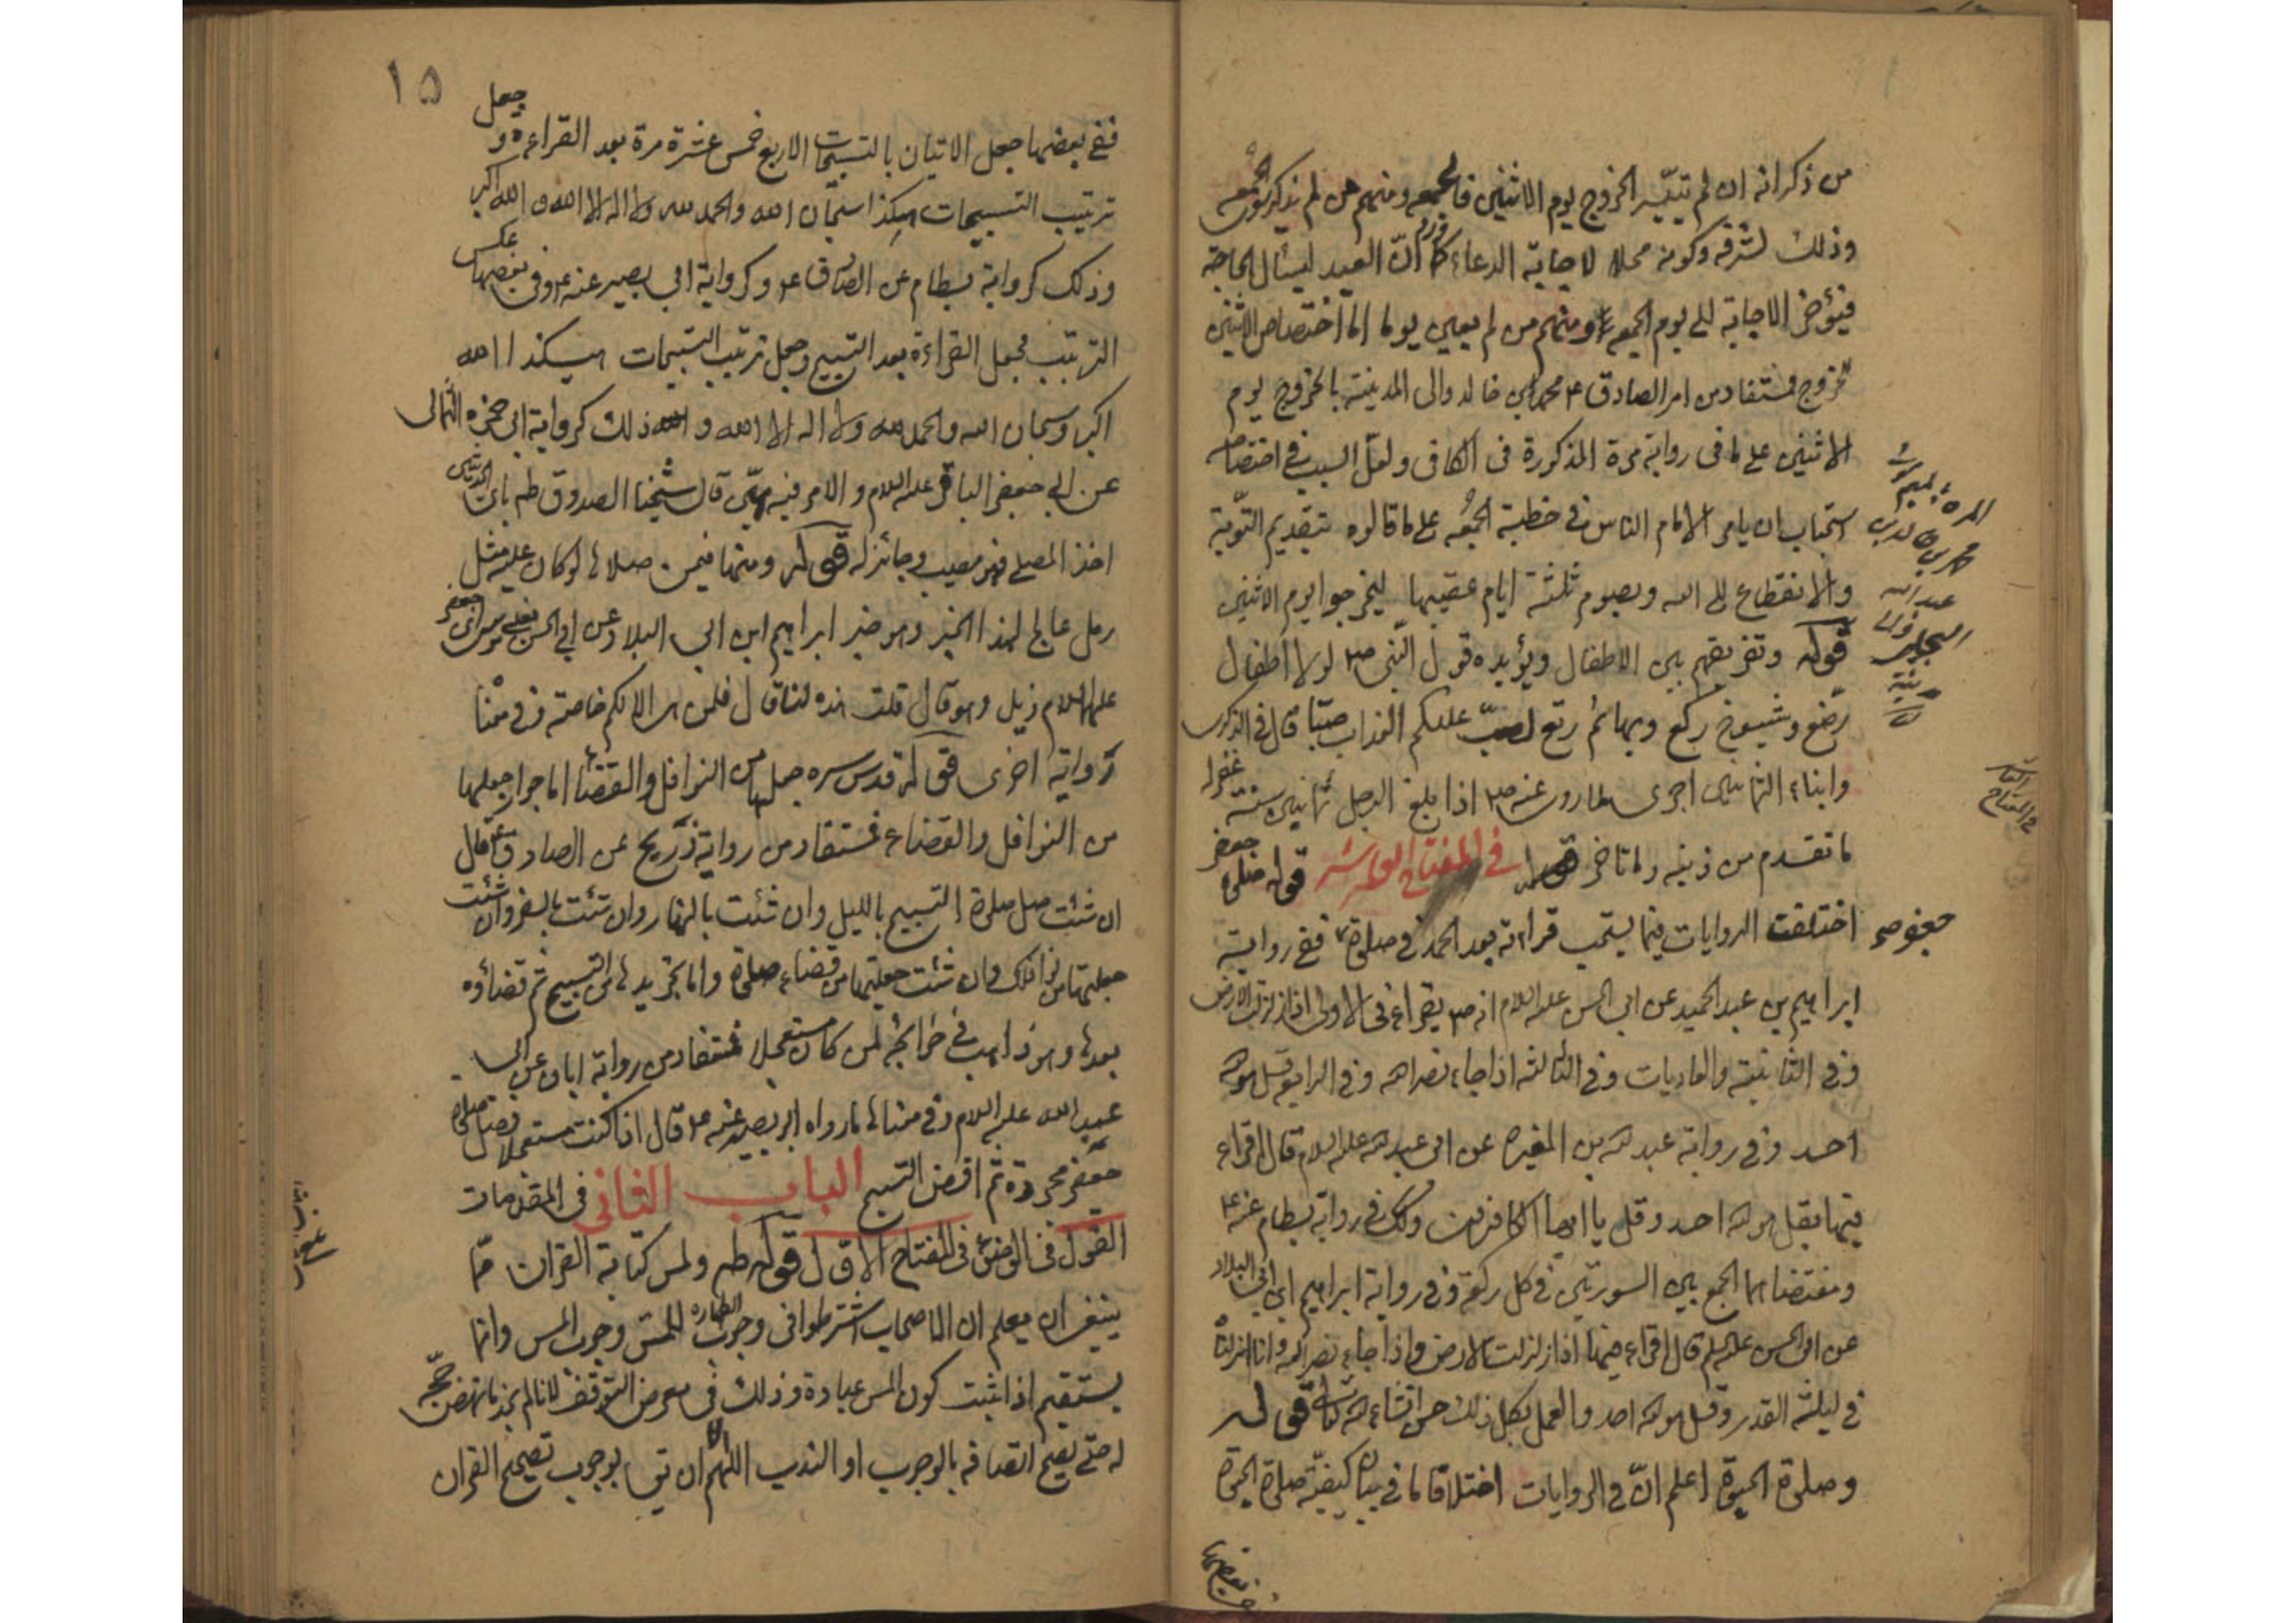 من ذكر انه ان لم يتيسر الخروج يوم الاثنين فالجمعه ومنهم من لم يذكر سوى الجمعه
وذلك لشرفه وكونه محلا لاجابة الدعاء كما ورد انّ العبد ليسئال الحاجة
فيؤخر الاجابة الى يوم الجمعه ومنهم من لم يعين يوما اما اختصاص الاثنين
للخروج فمستفاد من امر الصادق ع محمد بن خالد والى المدينة بالخروج يوم
الاثنين على ما فى رواية مرة المذكورة فى الكافى ولعلّ السبب فى اختصاصه
استحباب ان يامر الامام الناس فى خطبة الجمعه على ما قالوه بتقديم التّوبة
والانقطاع الى الله وبصوم ثلثة ايام عقيبها ليخرجوا يوم الاثنين
قوله وتفريقهم بين الاطفال ويؤيده قول النّبى ص لولا اطفال
رضّع وشيوخ ركع وبهائم رتع لصبّ عليكم العذاب صبّا قال فى الذكرى
وابناء الثمانين احرى لما روى عنه ص اذا بلغ الرجل ثمانين سنة غفر له
ما تقدم من ذنبه وما تاخر فى المفتاح العاشر قوله صلوة جعفر
اختلفت الروايات فيما يستحب قرائته بعد الحمد فى صلوة ففى رواية
ابراهيم بن عبد الحميد عن ابى الحسن عليه السلام انه يقراء فى الاولى اذا زلزلت الارض
وفى الثانية والعاديات وفى الثالثه اذا جاء نصر الله وفى الرابع قل هو الله
احد وفى رواية عبد الله بن المغيره عن ابى عبد الله عليه السلام قال اقراء
فيهما بقل هو الله احد وقل يا ايها الكافرون وكك فى رواية بسطام عنه ع
ومقتضاهما الجمع بين السورتين فى كل ركعة وفى رواية ابراهيم ابن ابى البلاد
عن ابى الحسن عليه السلم قال اقراء فيها اذا زلزلت الارض واذا جاء نصر الله وانا انزلناه
فى ليلة القدر وقل هو الله احد والعمل بكل ذلك حسن انشاء الله تعالى قوله
وصلوة الحبوة اعلم انّ فى الروايات اختلافا ما فى بيان كيفيّة صلوة الحبوة
ففى بعضها
جعفر ص
١٥
ففى بعضها جعل الاتيان بالتسبيحات الاربع خمس عشرة مرة بعد القراءة و جعل
ترتيب التسبيحات هكذا سبحان الله والحمد لله ولا اله الا الله و الله اكبر
وذلك كرواية بسطام عن الصادق ع وكرواية ابى بصير عنه ع وفى بعضها عكس
الترتيب فجعل القراءة بعد التسبيح وجعل ترتيب التسبيحات هكذا الله
اكبر وسبحان الله والحمد لله ولا اله الا الله و ذلك كرواية ابى حمزه الثمالى
عن ابى جعفر الباقر عليه السلام والامر فيه هيّن قال شيخنا الصدوق طه باى الحديثين
اخذ المصلى فهو مصيب وجائز له قوله ومنها فيمن صلاها لو كان عليه مثل
رمل عالج لهذا الخبر وهو خبر ابراهيم ابن ابى البلاد عن ابى الحسن يعنى موسى بن جعفر
عليهما السلام ذيل وهو قال قلت هذه لنا قال فلمن هى الا لكم خاصة وفى معنا
رواية اخرى قوله قدس سره جعلها من النوافل والقضاء اما جواز جعلها
من النوافل والقضاء فمستفاد من رواية ذريح عن الصادق ع قال
ان شئت صل صلوة التسبيح بالليل وان شئت بالنهار وان شئت بالسفر وان شئت
جعلتها من نوافلك وان شئت جعلتها من قضاء صلوة واما تجريدها من التسبيح ثم قضاؤه
بعدها وهو ذاهب فى حوائجه لمن كان مستعجلا فمستفاد من رواية ابان عن ابى
عبد الله عليه السلام وفى معناها ما رواه ابو بصير عنه ع قال اذا كنت مستعجلا فصل صلوة
جعفر مجردة ثم اقض التسبيح الباب الثانى فى المقدمات
القول فى الوضوء فى المفتاح الاول قوله طه ولمس كتابة القران ممّا
ينبغى ان يعلم ان الاصحاب اشترطوا فى وجوب الطهاره للمسّ وجوب المس وانما
يستقيم اذا ثبت كون المس عبادة وذلك فى معرض التوقف لانا لم نجد ما نهض حجّة
له حتى يصح اتصافه بالوجوب او الندب اللهم الا ان تى بوجوب تصحيح القران